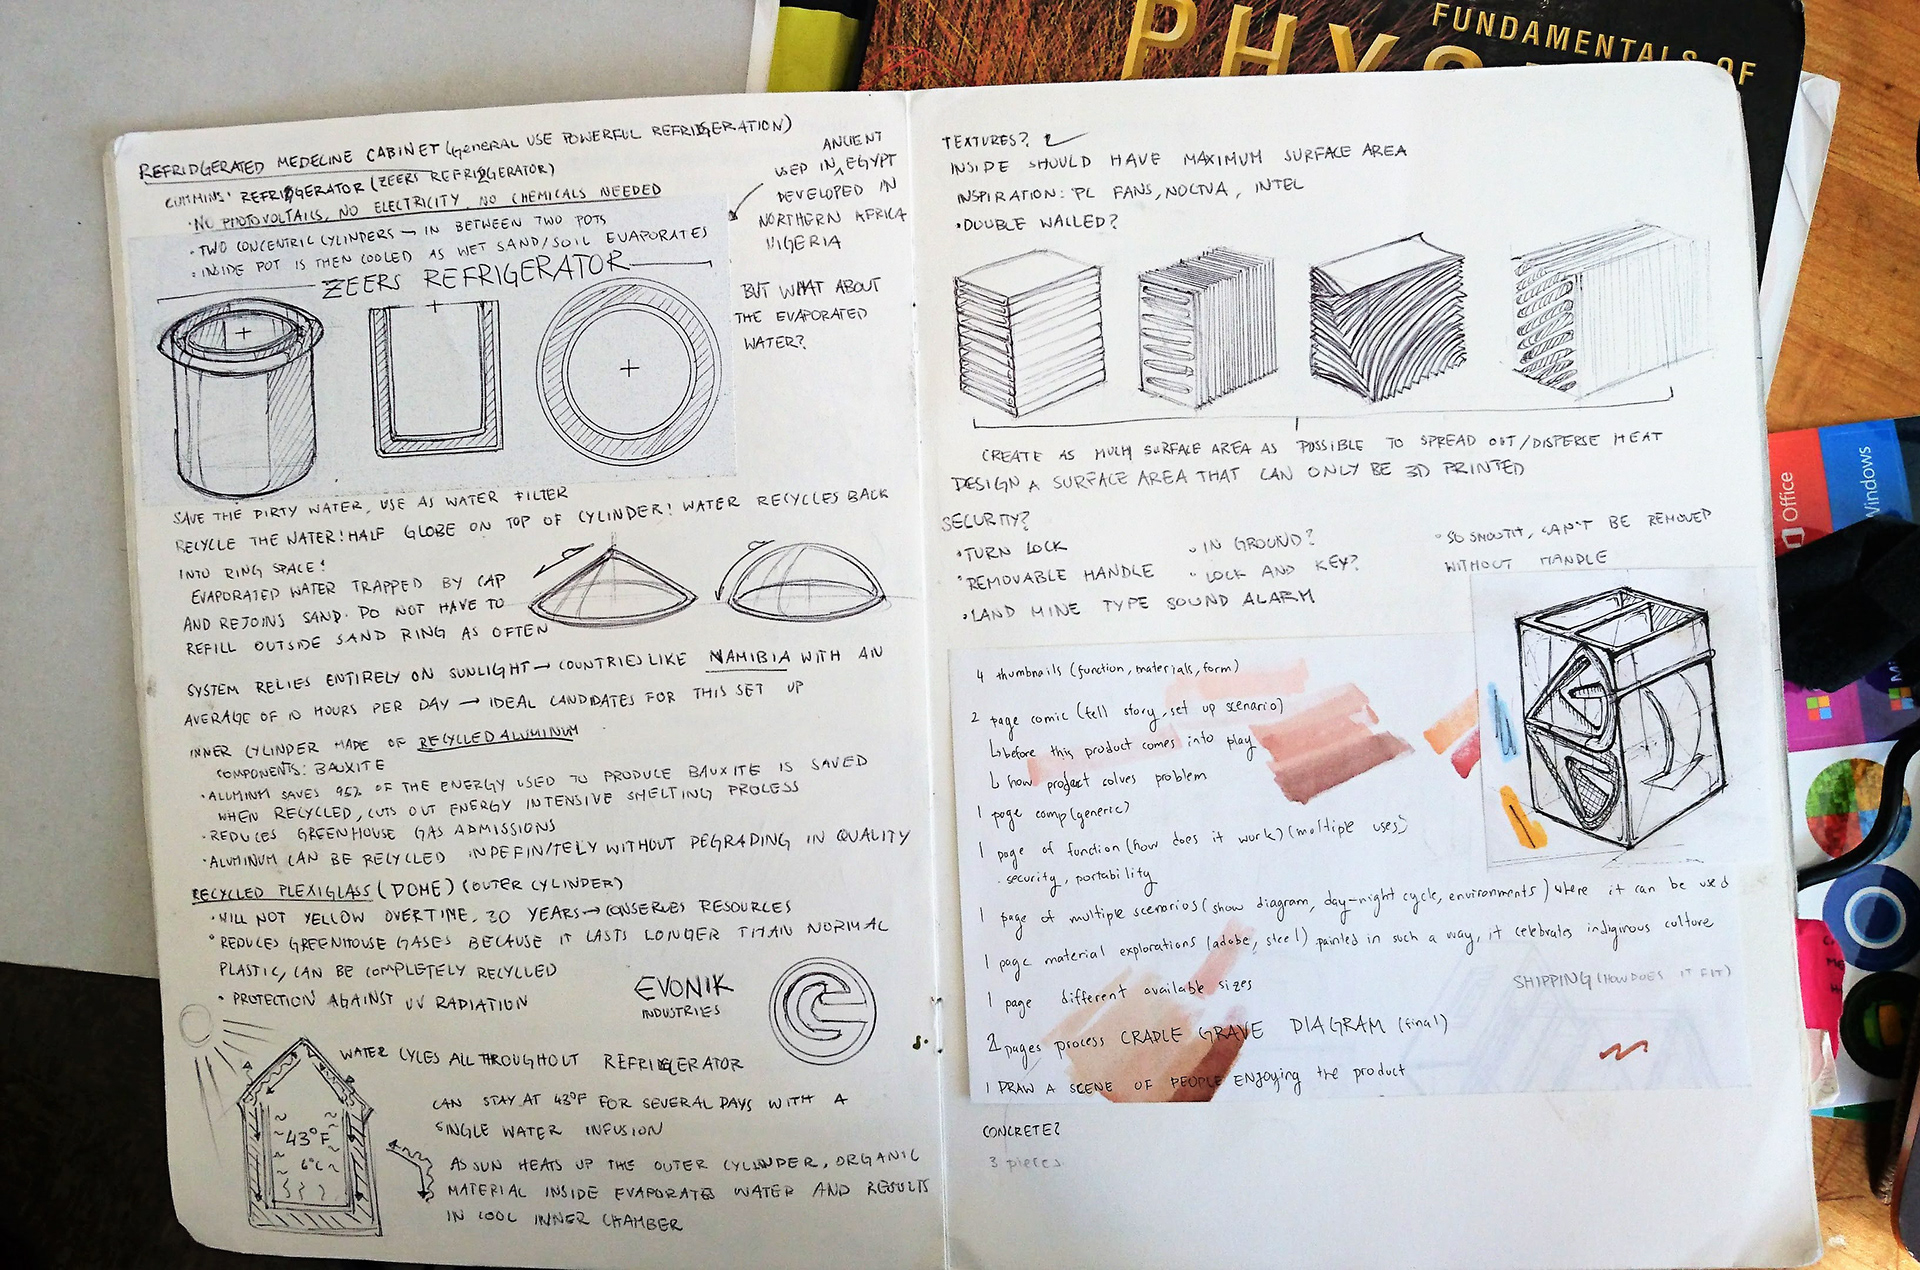 FUNDAMENTALS OF
PHYS
REFRIDGERATED MEDECINE CABINET (GENERAL USE POWERFUL REFRIDGERATION)
CUMMINS' REFRIDGERATOR (ZEERS REFRIDGERATOR)
• NO PHOTOVOLTAILS, NO ELECTRICITY, NO CHEMICALS NEEDED
• TWO CONCENTRIC CYLINDERS → IN BETWEEN TWO POTS
• INSIDE POT IS THEN COOLED AS WET SAND/SOIL EVAPORATES
ANCIENT
USED IN EGYPT
DEVELOPED IN
NORTHERN AFRICA
NIGERIA
ZEERS REFRIGERATOR
BUT WHAT ABOUT
THE EVAPORATED
WATER?
SAVE THE DIRTY WATER, USE AS WATER FILTER
RECYCLE THE WATER! HALF GLOBE ON TOP OF CYLINDER! WATER RECYCLES BACK
INTO RING SPACE!
EVAPORATED WATER TRAPPED BY CAP
AND REJOINS SAND. DO NOT HAVE TO
REFILL OUTSIDE SAND RING AS OFTEN
SYSTEM RELIES ENTIRELY ON SUNLIGHT → COUNTRIES LIKE NAMIBIA WITH AN
AVERAGE OF 10 HOURS PER DAY → IDEAL CANDIDATES FOR THIS SET UP
INNER CYLINDER MADE OF RECYCLED ALUMINUM
COMPONENTS: BAUXITE
• ALUMINUM SAVES 95% OF THE ENERGY USED TO PRODUCE BAUXITE IS SAVED
WHEN RECYCLED, CUTS OUT ENERGY INTENSIVE SMELTING PROCESS
• REDUCES GREENHOUSE GAS ADMISSIONS
• ALUMINUM CAN BE RECYCLED INDEFINITELY WITHOUT DEGRADING IN QUALITY
RECYCLED PLEXIGLASS (DOME) (OUTER CYLINDER)
• WILL NOT YELLOW OVERTIME, 30 YEARS → CONSERVES RESOURCES
• REDUCES GREENHOUSE GASES BECAUSE IT LASTS LONGER THAN NORMAL
PLASTIC, CAN BE COMPLETELY RECYCLED
• PROTECTION AGAINST UV RADIATION
EVONIK
INDUSTRIES
WATER CYCLES ALL THROUGHOUT REFRIDGERATOR
43°F
6°C
CAN STAY AT 43°F FOR SEVERAL DAYS WITH A
SINGLE WATER INFUSION
AS SUN HEATS UP THE OUTER CYLINDER, ORGANIC
MATERIAL INSIDE EVAPORATES WATER AND RESULTS
IN COOL INNER CHAMBER
TEXTURES?
INSIDE SHOULD HAVE MAXIMUM SURFACE AREA
INSPIRATION: PC FANS, NOCTUA, INTEL
• DOUBLE WALLED?
CREATE AS MUCH SURFACE AREA AS POSSIBLE TO SPREAD OUT/DISPERSE HEAT
DESIGN A SURFACE AREA THAT CAN ONLY BE 3D PRINTED
SECURITY?
• TURN LOCK
• IN GROUND?
• SO SMOOTH, CAN'T BE REMOVED
WITHOUT HANDLE
• REMOVABLE HANDLE
• LOCK AND KEY?
• LAND MINE TYPE SOUND ALARM
4 thumbnails (function, materials, form)
2 page comic (tell story, set up scenario)
↳ before this product comes into play
↳ how product solves problem
1 page comp (generic)
1 page of function (how does it work) (multiple uses)
. security, portability
1 page of multiple scenarios (show diagram, day-night cycle, environments) where it can be used
1 page material explorations (adobe, steel) painted in such a way, it celebrates indiginous culture
1 page different available sizes
SHIPPING (HOW DOES IT FIT)
2 pages process CRADLE GRAVE DIAGRAM (final)
1 DRAW A SCENE OF PEOPLE ENJOYING the product
CONCRETE?
3 pieces.
Office
Windows